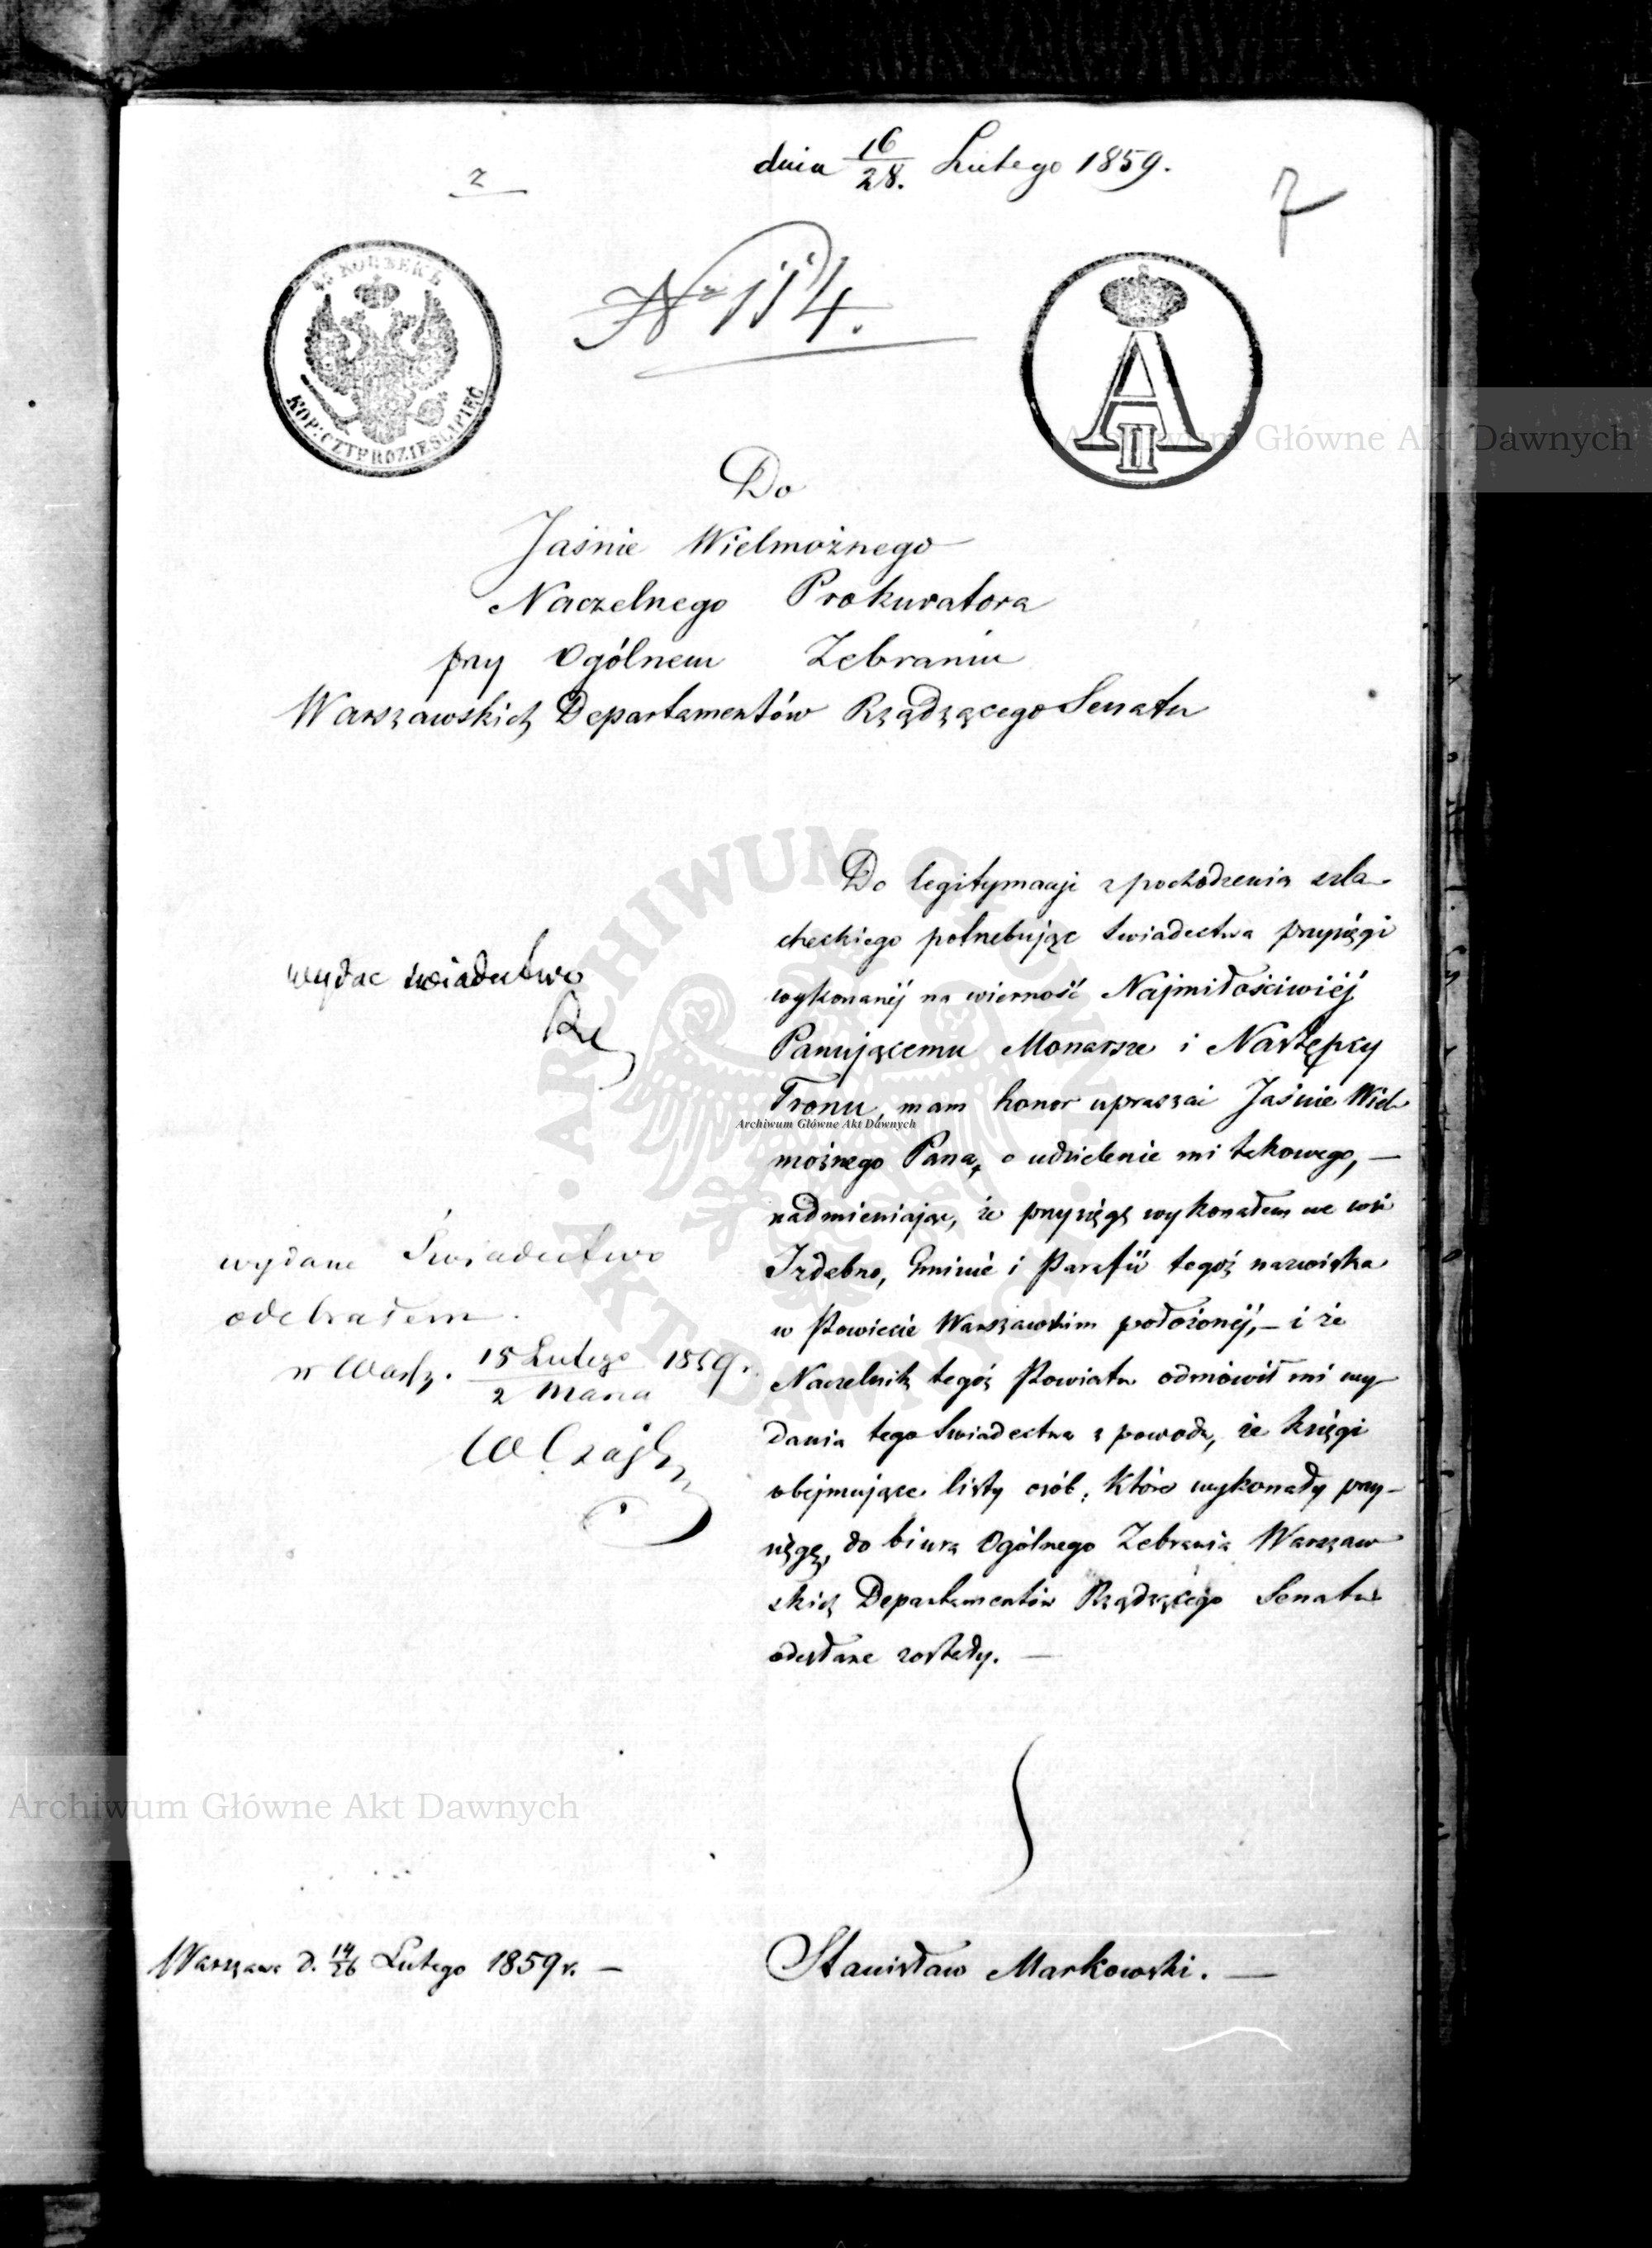 dnia 16/28. Lutego 1859.
2
7
№ 114.
45 KOPEEKЪ
KOP: CZTERDZIEŚCI PIĘĆ
A II
Do
Jaśnie Wielmożnego
Naczelnego Prokuratora
przy Ogólnem Zebraniu
Warszawskich Departamentów Rządzącego Senatu
Do legitymacji z pochodzenia szla-
checkiego potrzebując świadectwa przysięgi
wykonanéj na wierność Najmiłościwiéj
Panującemu Monarsze i Następcy
Tronu, mam honor upraszać Jaśnie Wiel-
możnego Pana, o udzielenie mi takowego, —
nadmieniając, że przysięgę wykonałem we wsi
Izdebno, Gminie i Parafii tegoż nazwiska
w Powiecie Warszawskim położonéj, – i że
Naczelnik tegoż Powiatu odmówił mi wy-
dania tego świadectwa z powodu, że księgi
obejmujące listy osób, które wykonały przy-
sięgę, do biura Ogólnego Zebrania Warszaw
skich Departamentów Rządzącego Senatu
odesłane zostały. —
wydac świadectwo
wydane Świadectwo
odebrałem.
w Warsz. 18 Lutego / 2 Marca 1859 r.
Warszawa d. 14/26 Lutego 1859 r. —
Stanisław Markowski. —
Archiwum Główne Akt Dawnych
ARCHIWUM GŁÓWNE AKT DAWNYCH
Archiwum Główne Akt Dawnych
Archiwum Główne Akt Dawnych